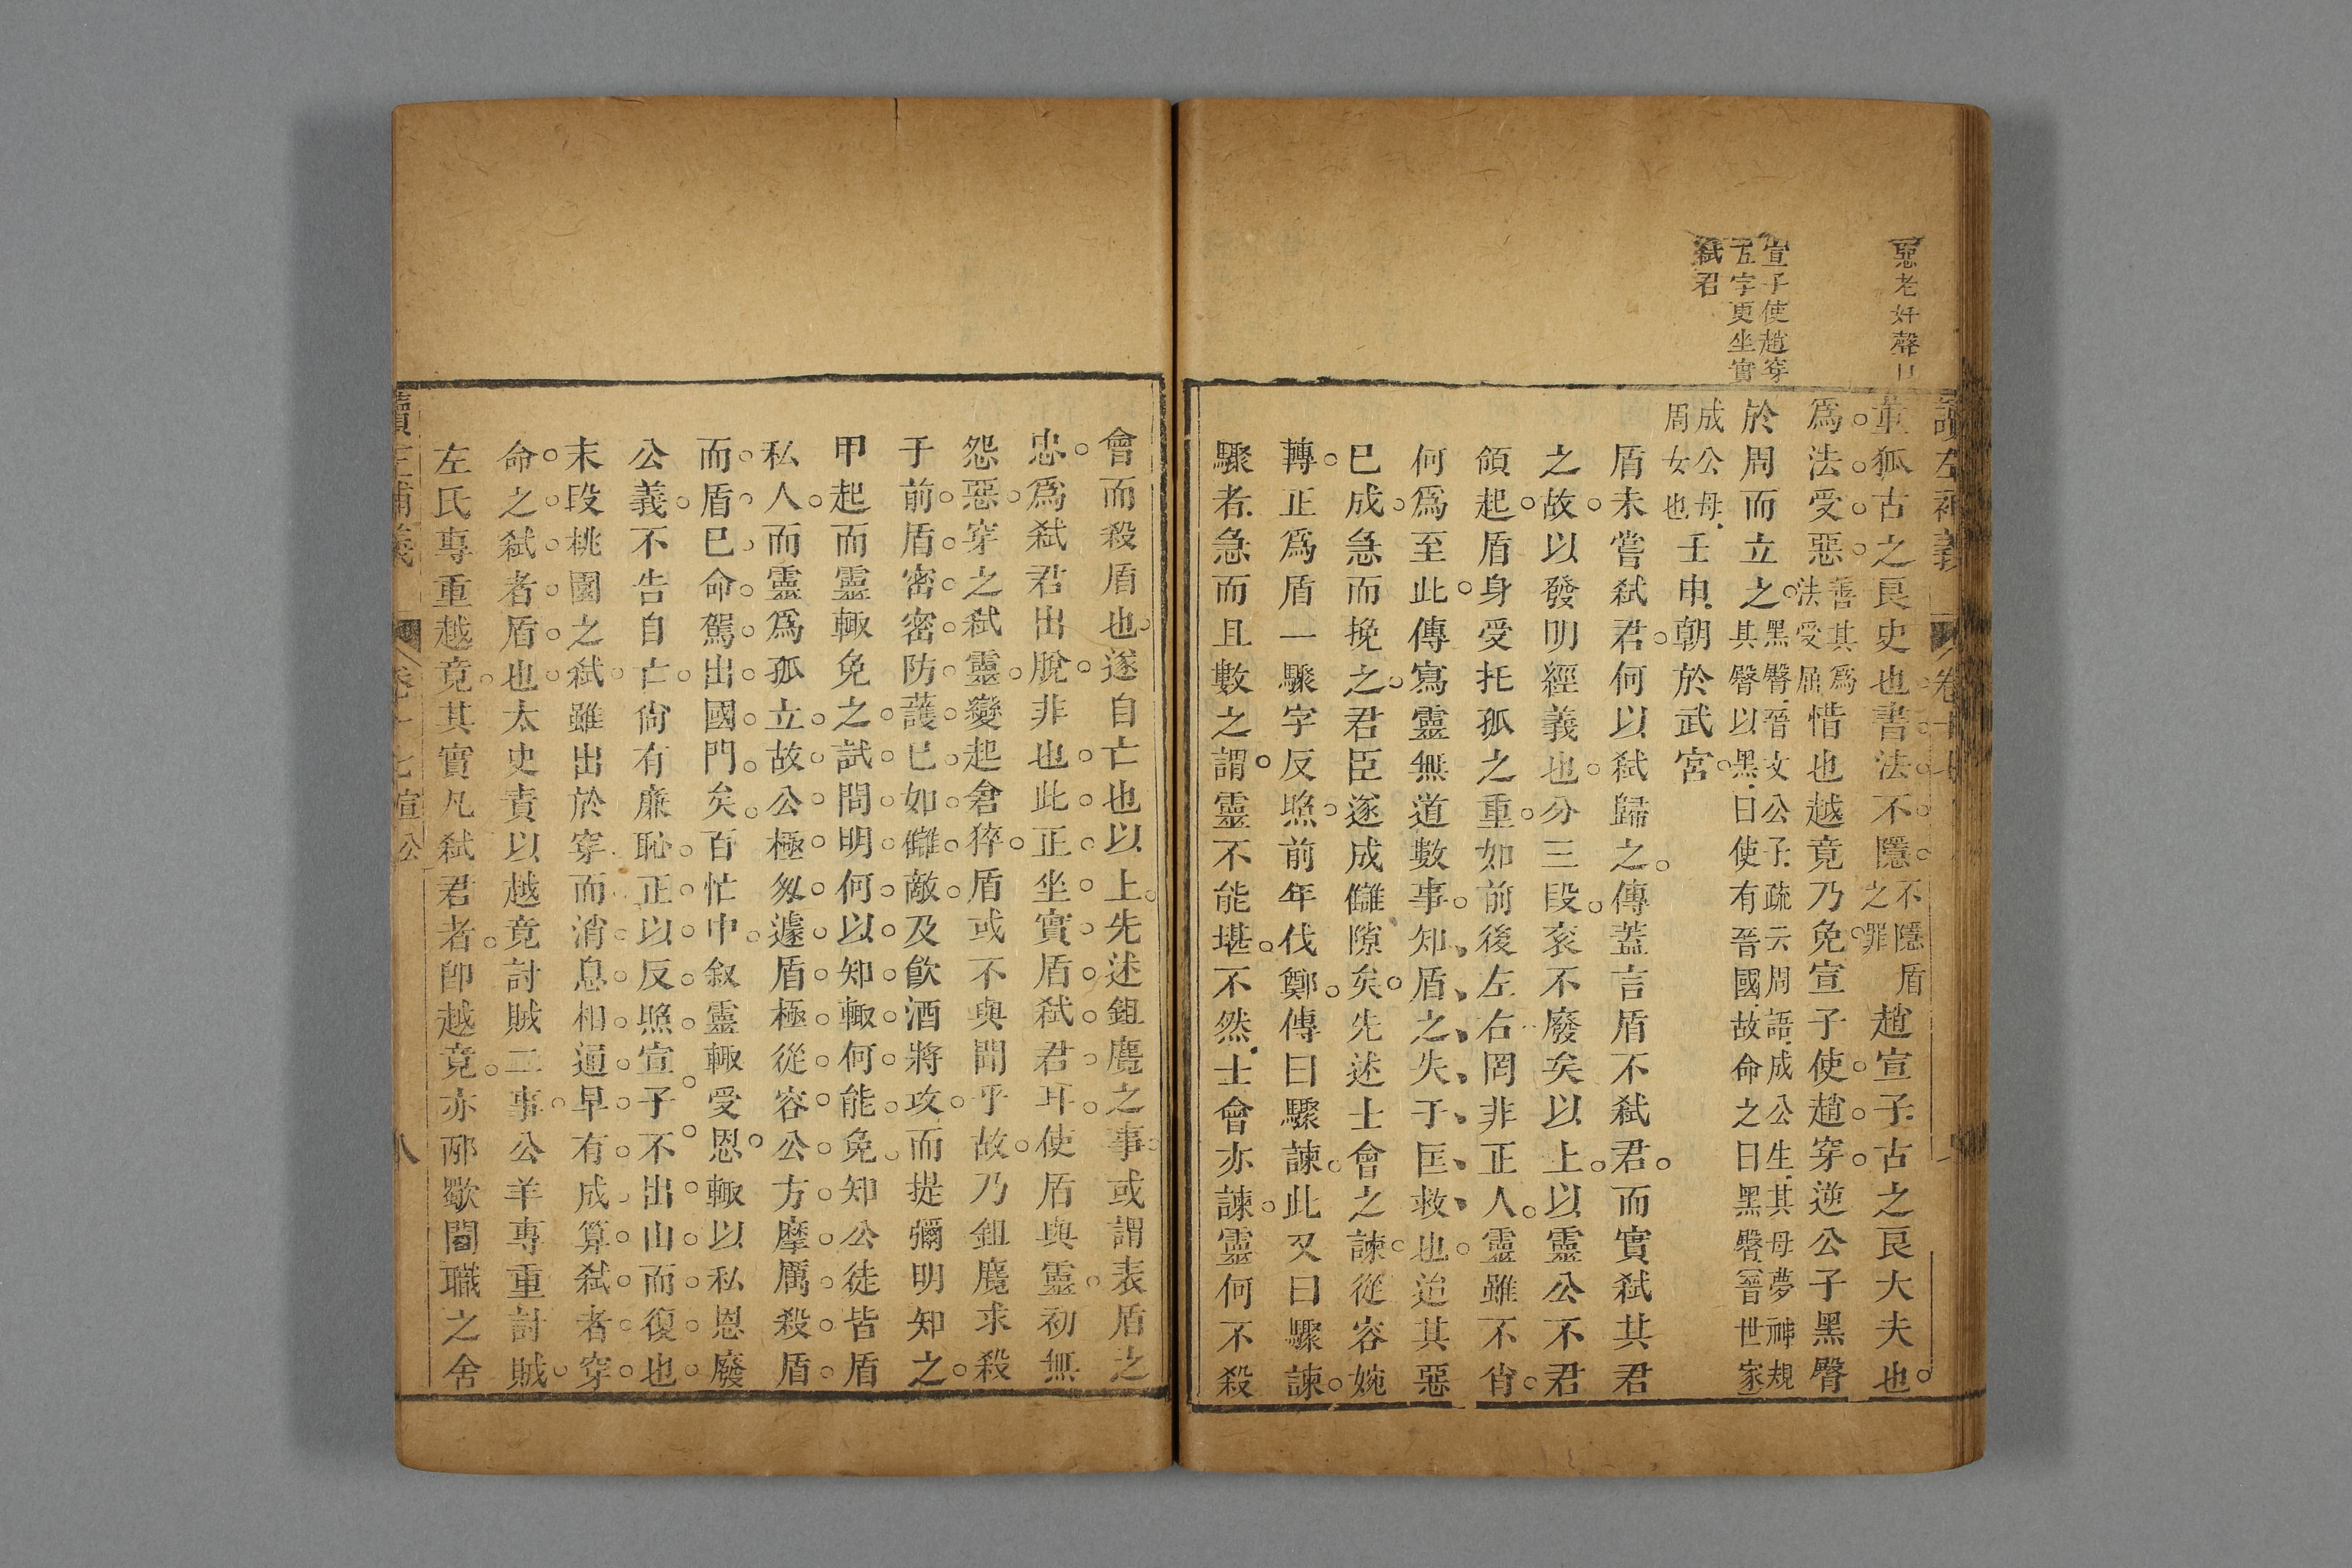 惡老奸聲口
宣子使趙穿
五字更坐實
弑君
讀左補義 卷十七
董狐古之良史也書法不隱不隱盾之罪趙宣子古之良大夫也
爲法受惡善其爲法受屈惜也越竟乃免宣子使趙穿逆公子黑臀
於周而立之黑臀晉文公子疏云周語成公生其母夢神規其臀以黑曰使有晉國故命之曰黑臀晉世家
成公母周女也壬申朝於武宮
盾未嘗弑君何以弑歸之傳蓋言盾不弑君而實弑其君
之故以發明經義也分三段衮不廢矣以上以靈公不君
領起盾身受托孤之重如前後左右罔非正人靈雖不肖
何爲至此傳寫靈無道數事知盾之失于匡救也迨其惡
已成急而挽之君臣遂成讎隙矣先述士會之諫從容婉
轉正爲盾一驟字反照前年伐鄭傳曰驟諫此又曰驟諫
驟者急而且數之謂靈不能堪不然士會亦諫靈何不殺
會而殺盾也遂自亡也以上先述鉏麑之事或謂表盾之
忠爲弑君出脫非也此正坐實盾弑君耳使盾與靈初無
怨惡穿之弑靈變起倉猝盾或不與聞乎故乃鉏麑求殺
于前盾密密防護已如讎敵及飮酒將攻而提彌明知之
甲起而靈輒免之試問明何以知輒何能免知公徒皆盾
私人而靈爲孤立故公極匆遽盾極從容公方摩厲殺盾
而盾已命駕出國門矣百忙中叙靈輒受恩輒以私恩廢
公義不告自亡尙有廉恥正以反照宣子不出山而復也
末段桃園之弑雖出於穿而消息相通早有成算弑者穿
命之弑者盾也太史責以越竟討賊二事公羊專重討賊
左氏專重越竟其實凡弑君者卽越竟亦邴歜閻職之舍
讀左補義 卷十七宣公 八